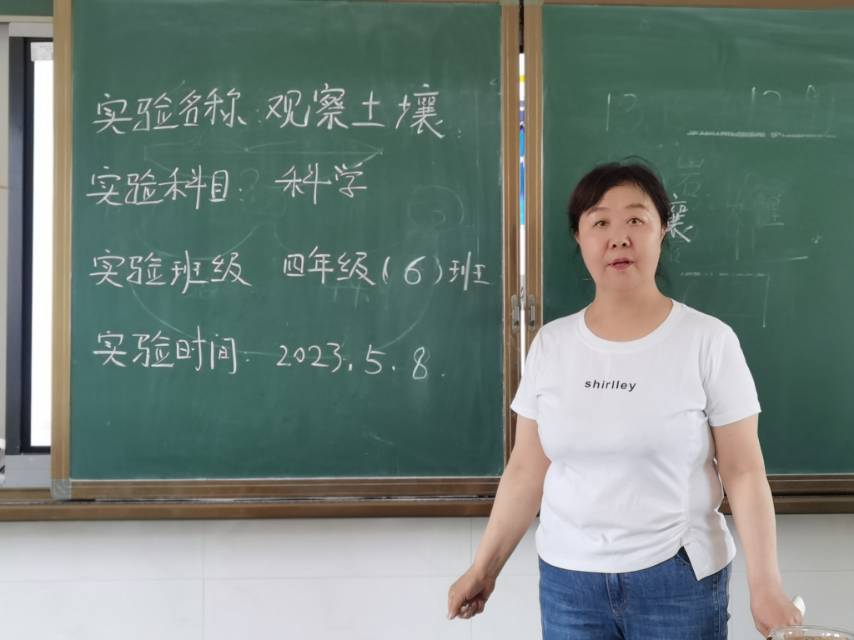 实验名称:观察土壤.
实验科目: 科学
实验班级 四年级(6)班
实验时间: 2023.5.8.
壤
shirlley